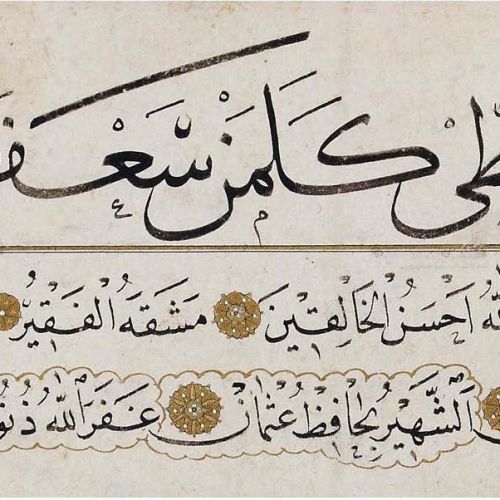 طى كَلَمَنْ سَعْفَ
اَحْسَنُ الْخَالِقِينَ مَشَقَهُ الْفَقِيْرُ
اَلشَّهِيْرُ بِحَافِظْ عُثْمَانْ غَفَرَ اللهُ